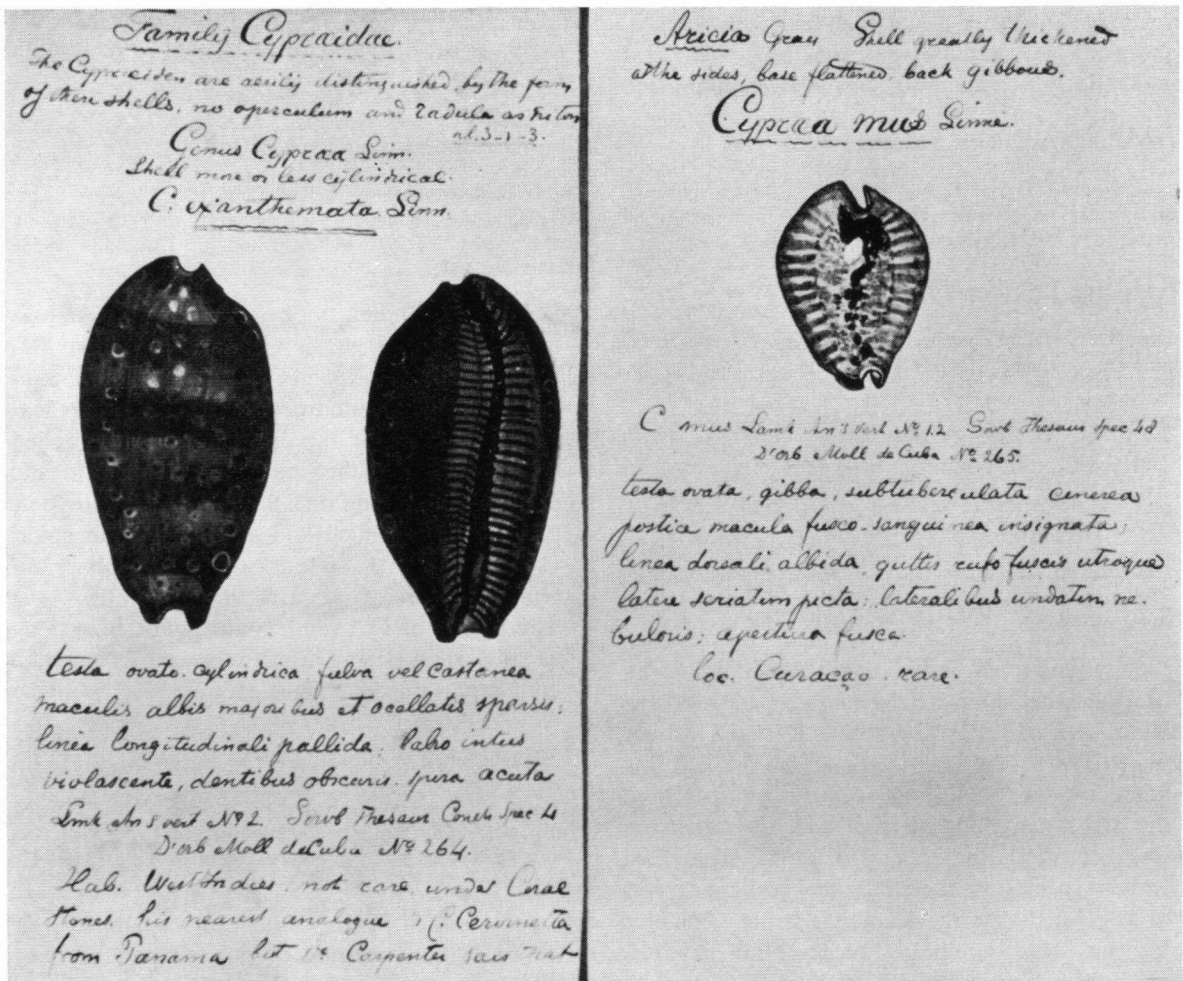 Family Cypraidae.
The Cypraeiden are aesily distinguished by the form
of their shells, no operculum and radula as triton
nl. 3-1-3.
Genus Cypraa Linn.
Shell more or less cylindrical.
C. exanthemata Linn.
testa ovato-cylindrica fulva vel castanea
maculis albis majoribus et ocellatis sparsis:
linea longitudinali pallida: labro intus
violascente, dentibus obscuris. spira acuta
Lmk An s vert No 2. Sowb Thesaur Conch Spec 4
D'orb Moll de Cuba No 264.
Hab. West Indies. not rare under Coral
stones. his nearest analogue is C. Cervinetta
from Panama but Dr Carpenter sais that
Aricia Gray Shell greatly thickened
at the sides, base flattened back gibbous.
Cypraa mus Linne.
C mus Lamk An s vert No 12 Sowb Thesaur spec 48
D'orb Moll de Cuba No 265.
testa ovata, gibba, subtuberculata cinerea
postica macula fusco-sanguinea insignata;
linea dorsali albida, guttis rufo fuscis utroque
latere seriatim picta; lateralibus undatim ne-
bulosis; apertura fusca.
loc. Curaçao. rare.